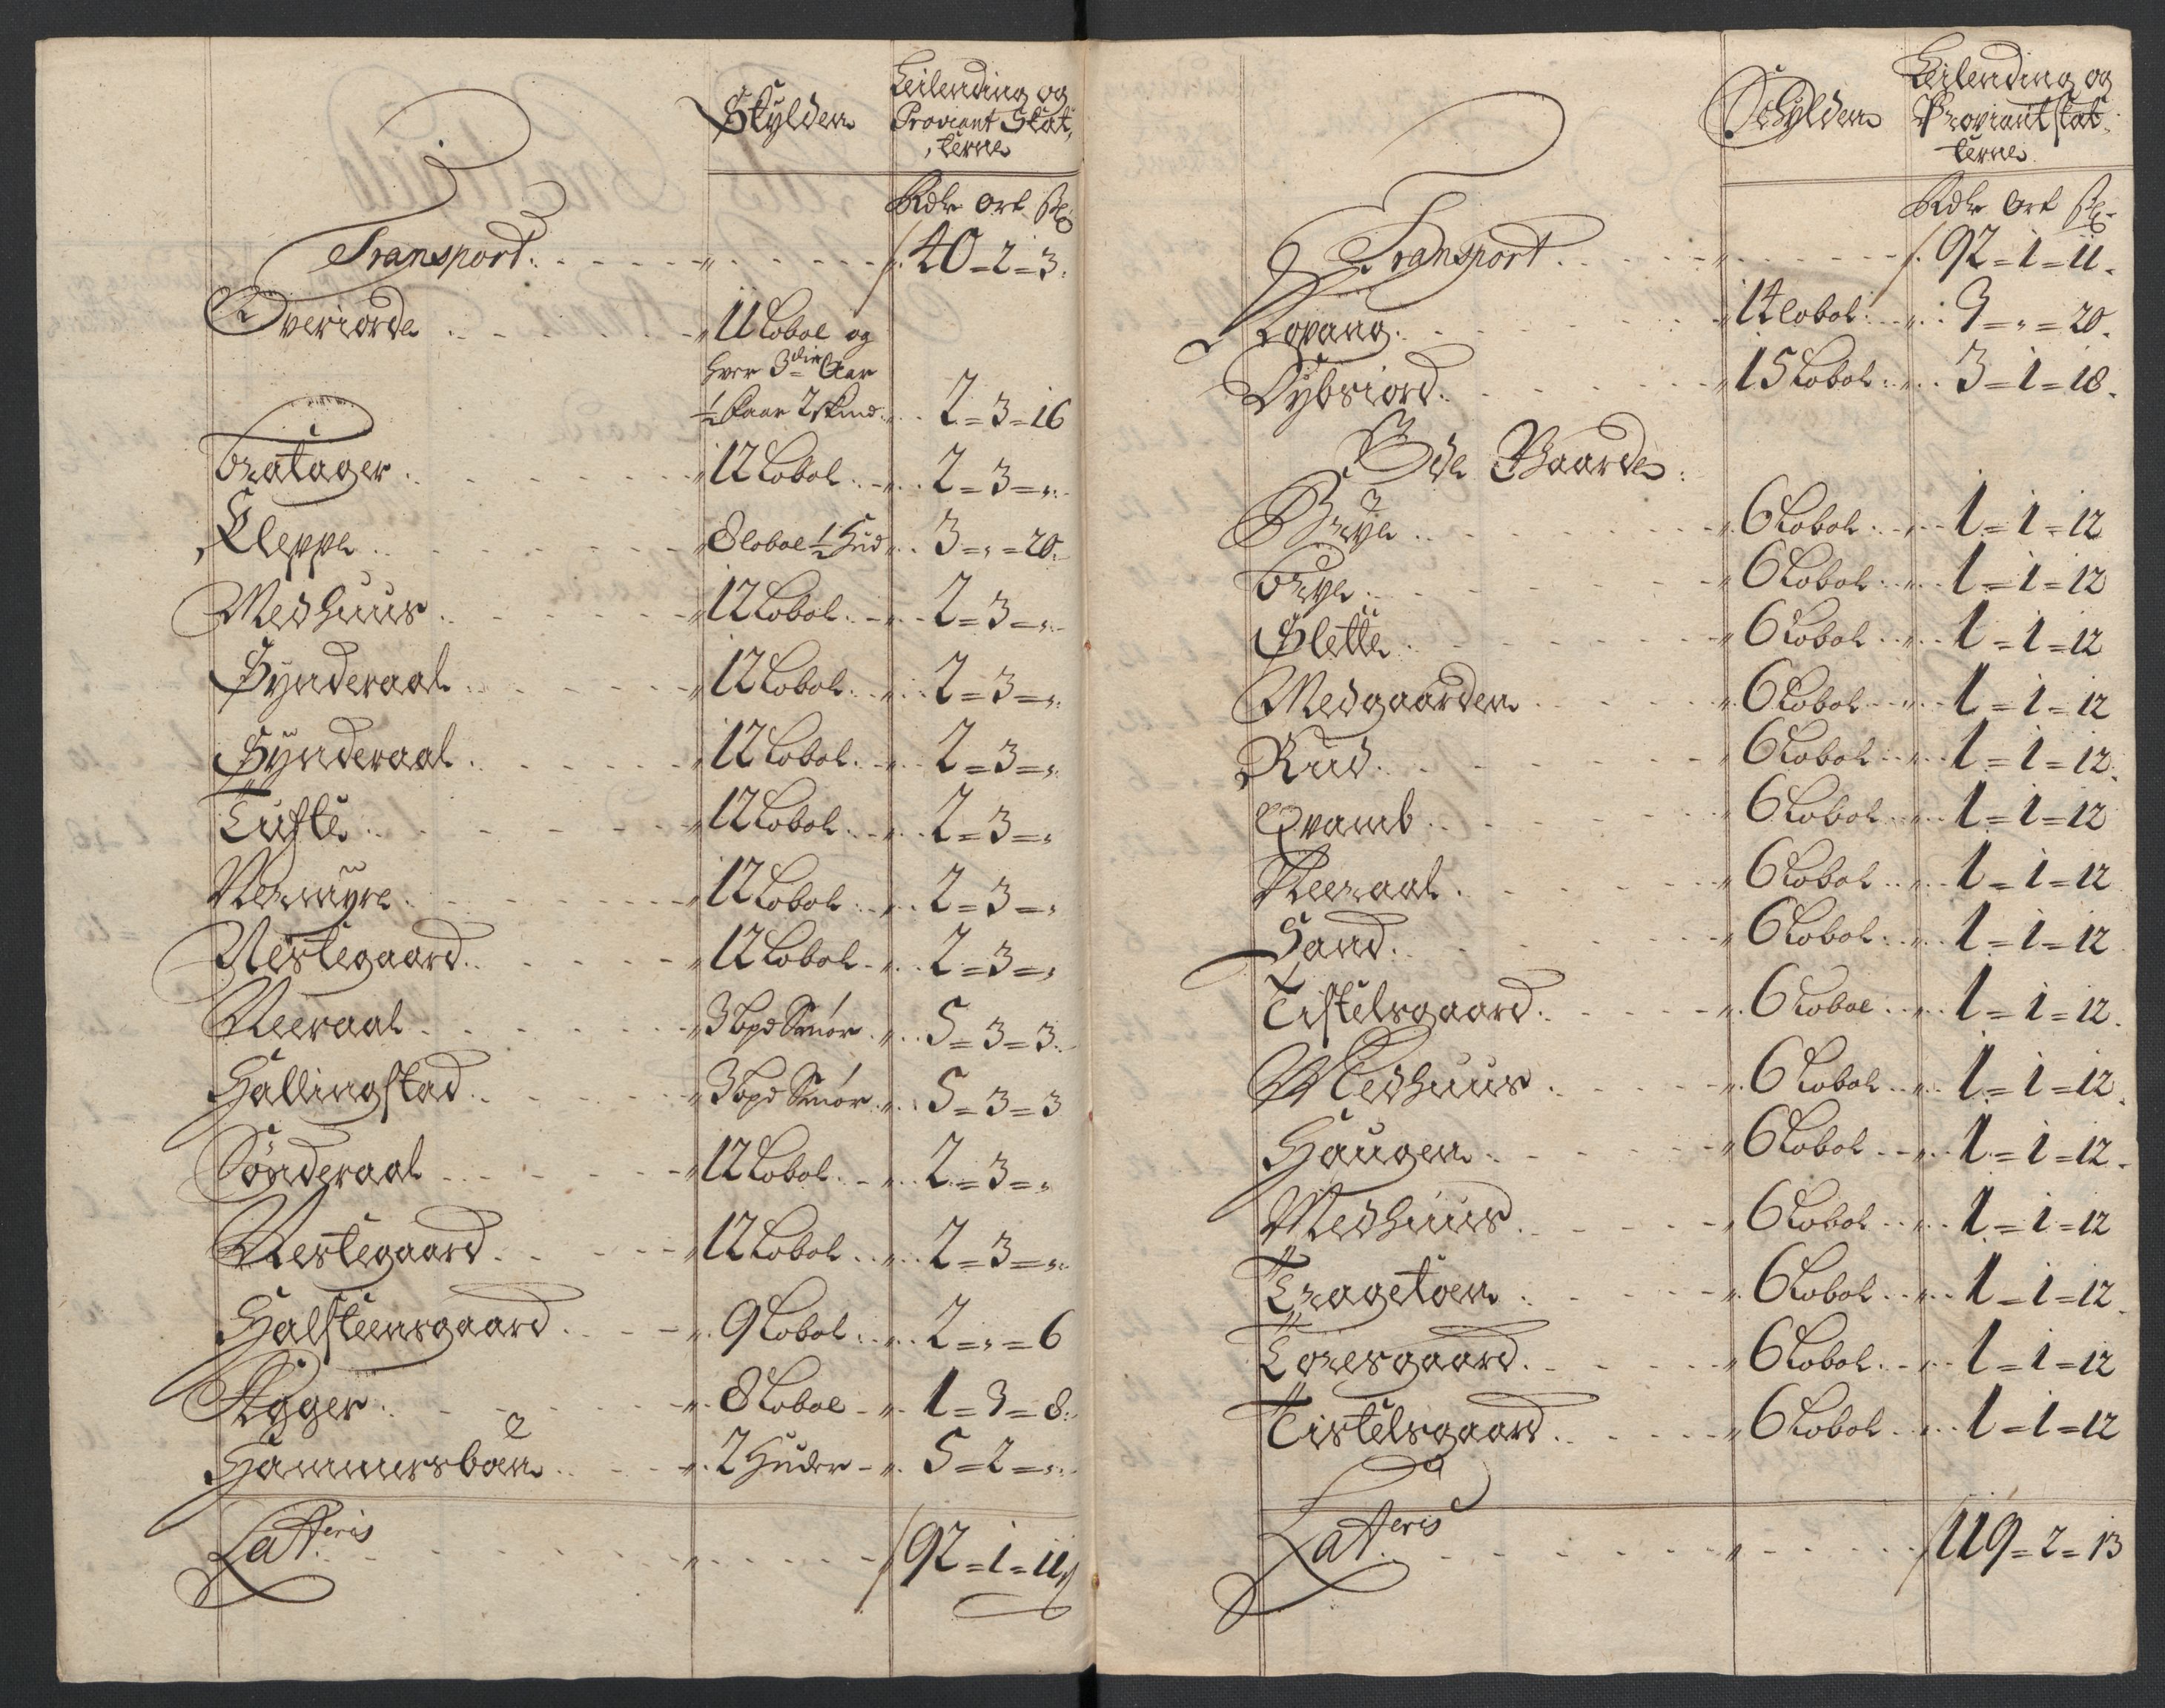 Skylden
Leilending og
Proviant Skat,
,terne
Rdlr ort s
Transport. 40=2=3.
Overiorde 11 Lobol og
hver 3die Aar
1/2 Kaar 2 skind 2=3=16
Bratager 12 Lobol 2=3=,,
Kleppe 8 lobol 1/2 Hud 3=,,=20.
Medhuus 12 Lobol 2=3=,,
Synderaal 12 Lobol 2=3=,,
Synderaal 12 Lobol 2=3=,,
Tufte 12 Lobol 2=3=,,
Nermyre 12 Lobol 2=3=,,
Nestegaard 12 Lobol 2=3=,,
Neeraal 3 bpd Smør 5=3=3.
Hallingstad 3 bpd Smør 5=3=3
Sönderaal 12 Lobol 2=3=,,
Nestegaard 12 Lobol 2=3=,,
Halsteensgaard 9 Lobol 2=,,=6
Ager 8 Lobol 1=3=8.
Hammersboen 2 Huder 5=2=,,
Lateris 92=1=11
Skylden
Leilending og
Proviant skat,
terne
Rdlr ort s
Transport 92=1=11.
Lopang 14 Lobol 3=,,=20.
Dybsiord 15 Lobol 3=1=18.
Øde Gaarde.
Brye 6 Lobol 1=1=12
Brye 6 Lobol 1=1=12
Slette 6 Lobol 1=1=12
Medgaarden 6 Lobol 1=1=12
Rud 6 Lobol 1=1=12.
Qvamb 6 Lobol 1=1=12
Neeraal 6 Lobol 1=1=12
Sand 6 Lobol 1=1=12
Tistelsgaard 6 Lobol 1=1=12.
Medhuus 6 Lobol 1=1=12.
Haugen 6 Lobol 1=1=12.
Medhuus 6 Lobol 1=1=12
Tragetoen 6 Lobol 1=1=12.
Toresgaard 6 Lobol 1=1=12
Tistelsgaard 6 Lobol 1=1=12
Lateris 119=2=13